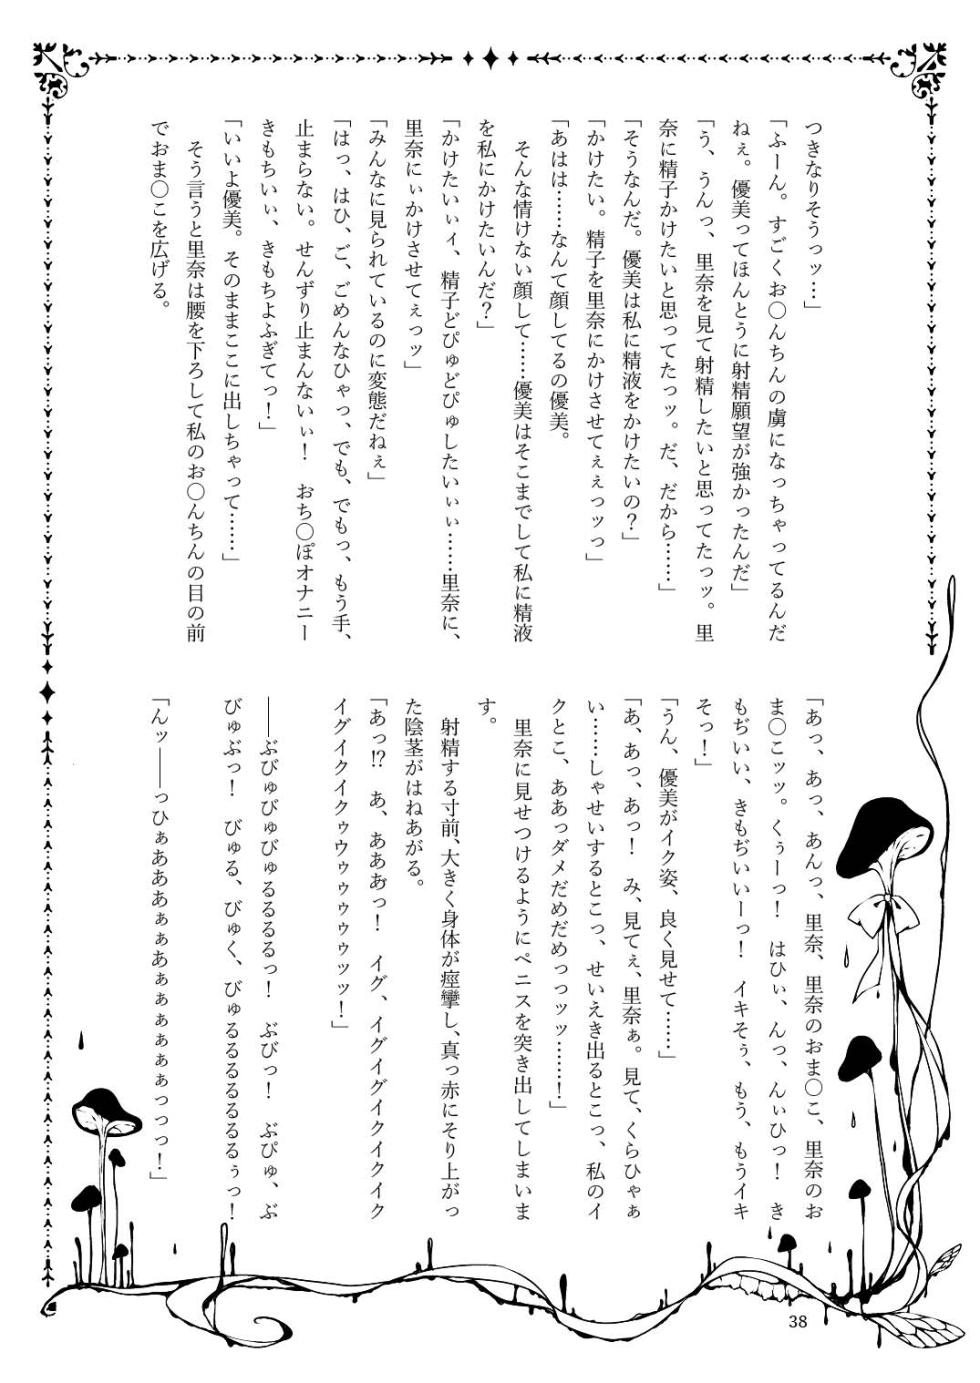 つきなりそうッ…」
「ふーん。すごくお〇んちんの虜になっちゃってるんだ
ねぇ。優美ってほんとうに射精願望が強かったんだ」
「う、うんっ、里奈を見て射精したいと思ってたっッ。里
奈に精子かけたいと思ってたっッ。だ、だから……」
「そうなんだ。優美は私に精液をかけたいの？」
「かけたい。精子を里奈にかけさせてぇぇっッっ」
「あはは……なんて顔してるの優美。
　そんな情けない顔して……優美はそこまでして私に精液
を私にかけたいんだ？」
「かけたいぃィ、精子どぴゅどぴゅしたいぃぃ……里奈に、
里奈にぃかけさせてぇっッ」
「みんなに見られているのに変態だねぇ」
「はっ、はひ、ご、ごめんなひゃっ、でも、でもっ、もう手、
止まらない。せんずり止まんないぃ！　おち〇ぽオナニー
きもちいぃ、きもちよふぎてっ！」
「いいよ優美。そのままここに出しちゃって……」
　そう言うと里奈は腰を下ろして私のお〇んちんの目の前
でおま〇こを広げる。
「あっ、あっ、あんっ、里奈、里奈のおま〇こ、里奈のお
ま〇こッッ。くぅーっ！　はひぃ、んっ、んぃひっ！　き
もぢいい、きもぢいいーっ！　イキそぅ、もう、もうイキ
そっ！」
「うん、優美がイク姿、良く見せて……」
「あ、あっ、あっ！　み、見てぇ、里奈ぁ。見て、くらひゃぁ
い……しゃせいするとこっ、せいえき出るとこっ、私のイ
クとこ、ああっダメだめだめっっッッ……！」
　里奈に見せつけるようにペニスを突き出してしまいま
す。
　射精する寸前、大きく身体が痙攣し、真っ赤にそり上がっ
た陰茎がはねあがる。
「あっ⁉　あ、あああっ！　イグ、イグイグイクイクイク
イグイクイクゥウゥゥゥゥゥッッ！」
――ぶびゅびゅびゅるるるっ！　ぶびっ！　ぶぴゅ、ぶ
びゅぶっ！　びゅる、びゅく、びゅるるるるるるぅっ！
「んッ――っひぁああああぁぁあぁぁぁぁぁぁっっっ！」
38